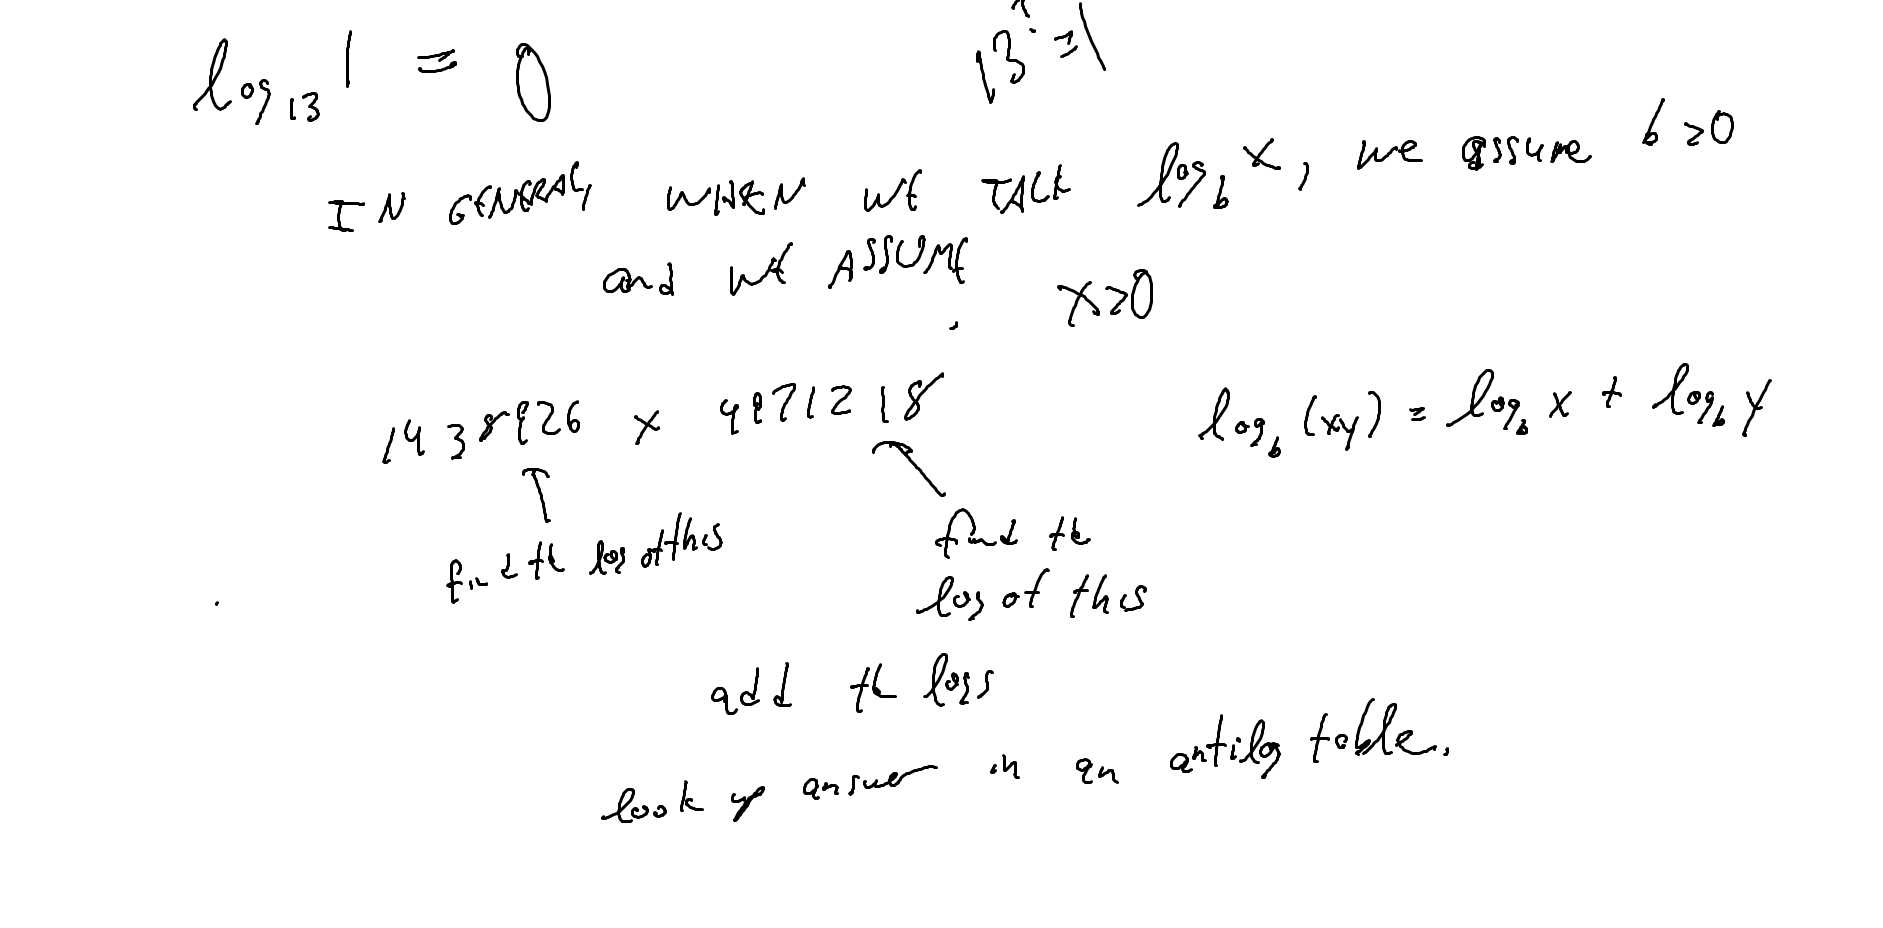 log₁₃ 1 = 0
13^? = 1
IN GENERAL, WHEN WE TALK log_b x, we assume b>0
and WE ASSUME x>0
1438926 x 4971218
log_b (xy) = log_b x + log_b y
find the log of this
find the
log of this
add the logs
look up answer in an antilog table.